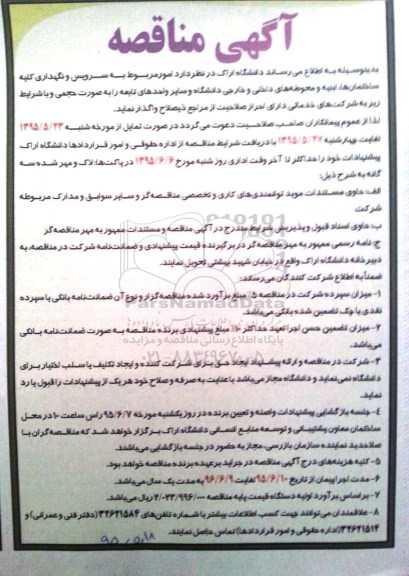 آگهی مناقصه
بدینوسیله به اطلاع می رساند دانشگاه اراک در نظر دارد امور مربوط به سرویس و نگهداری کلیه
ساختمان‌ها، ابنیه و محوطه‌های داخلی و خارجی دانشگاه و سایر واحدهای تابعه را به صورت حجمی و با شرایط
زیر به شرکت‌های خدماتی دارای احراز صلاحیت از مراجع ذیصلاح واگذار نماید.
لذا از عموم پیمانکاران صاحب صلاحیت دعوت می گردد در صورت تمایل از مورخه شنبه ۱۳۹۵/۵/۲۳
لغایت چهارشنبه ۱۳۹۵/۵/۲۷ با دریافت شرایط مناقصه از اداره حقوقی و امور قراردادها دانشگاه اراک
پیشنهادات خود را حداکثر تا آخر وقت اداری روز شنبه مورخ ۱۳۹۵/۶/۶ در پاکت‌ها، لاک و مهر شده سه
گانه به شرح ذیل:
الف: حاوی مستندات موید توانمندی‌های کاری و تخصصی مناقصه‌گر و سایر سوابق و مدارک مربوطه
شرکت
ب: حاوی اسناد قبول و پذیرش شرایط مندرج در آگهی مناقصه و مستندات ممهور به مهر مناقصه‌گر
ج: نامه رسمی ممهور به مهر مناقصه‌گر در برگیرنده قیمت پیشنهادی و ضمانت‌نامه شرکت در مناقصه، به
دبیرخانه دانشگاه اراک واقع در خیابان شهید بهشتی تحویل نمایند.
ضمناً به اطلاع شرکت کنندگان می‌رساند:
۱- میزان سپرده شرکت در مناقصه ۵٪ مبلغ برآورد شده مناقصه‌گزار و نوع آن ضمانت‌نامه بانکی یا سپرده
نقدی یا چک تضمین شده بانکی می‌باشد.
۲- میزان تضمین حسن اجرا تعهد حداکثر مبلغ پیشنهادی برنده مناقصه به صورت ضمانت‌نامه بانکی
می‌باشد.
۳- شرکت در مناقصه و ارائه پیشنهاد ایجاد حق برای شرکت کننده و ایجاد تکلیف یا سلب اختیار برای
دانشگاه نمی‌نماید و دانشگاه مجاز می‌باشد با عنایت به صرفه و صلاح خود هر یک از پیشنهادات را قبول یا رد
نماید.
۴- جلسه بازگشایی پیشنهادات واصله و تعیین برنده در روز یکشنبه مورخه ۹۵/۶/۷ راس ساعت ۱۰ در محل
ساختمان معاون پشتیبانی و توسعه منابع انسانی دانشگاه اراک برگزار خواهد شد که مناقصه‌گران یا
صلاحدید نماینده سازمان بازرسی، مجاز به حضور در جلسه بازگشایی می‌باشند.
۵- کلیه هزینه‌های درج آگهی مناقصه در جراید برعهده برنده مناقصه خواهد بود.
۶- مدت اجرا پیمان از تاریخ ۹۵/۶/۱۰ لغایت ۹۶/۶/۹ به مدت یک سال می‌باشد.
۷- بر اساس برآورد اولیه دستگاه قیمت پایه مناقصه ریال می‌باشد.
۸- علاقمندان می‌توانند جهت کسب اطلاعات بیشتر با شماره تلفن‌های ۳۲۶۲۱۵۸۴ (دفتر فنی و عمرانی) و
۳۲۶۲۱۵۱۴ (اداره حقوقی و امور قراردادها) تماس حاصل نمایند.
۹۵/۵/۱۸
ParsNamadData
پایگاه اطلاع رسانی مناقصه و مزایده
۰۲۱-۸۸۳۴۹۶۷۰-۵